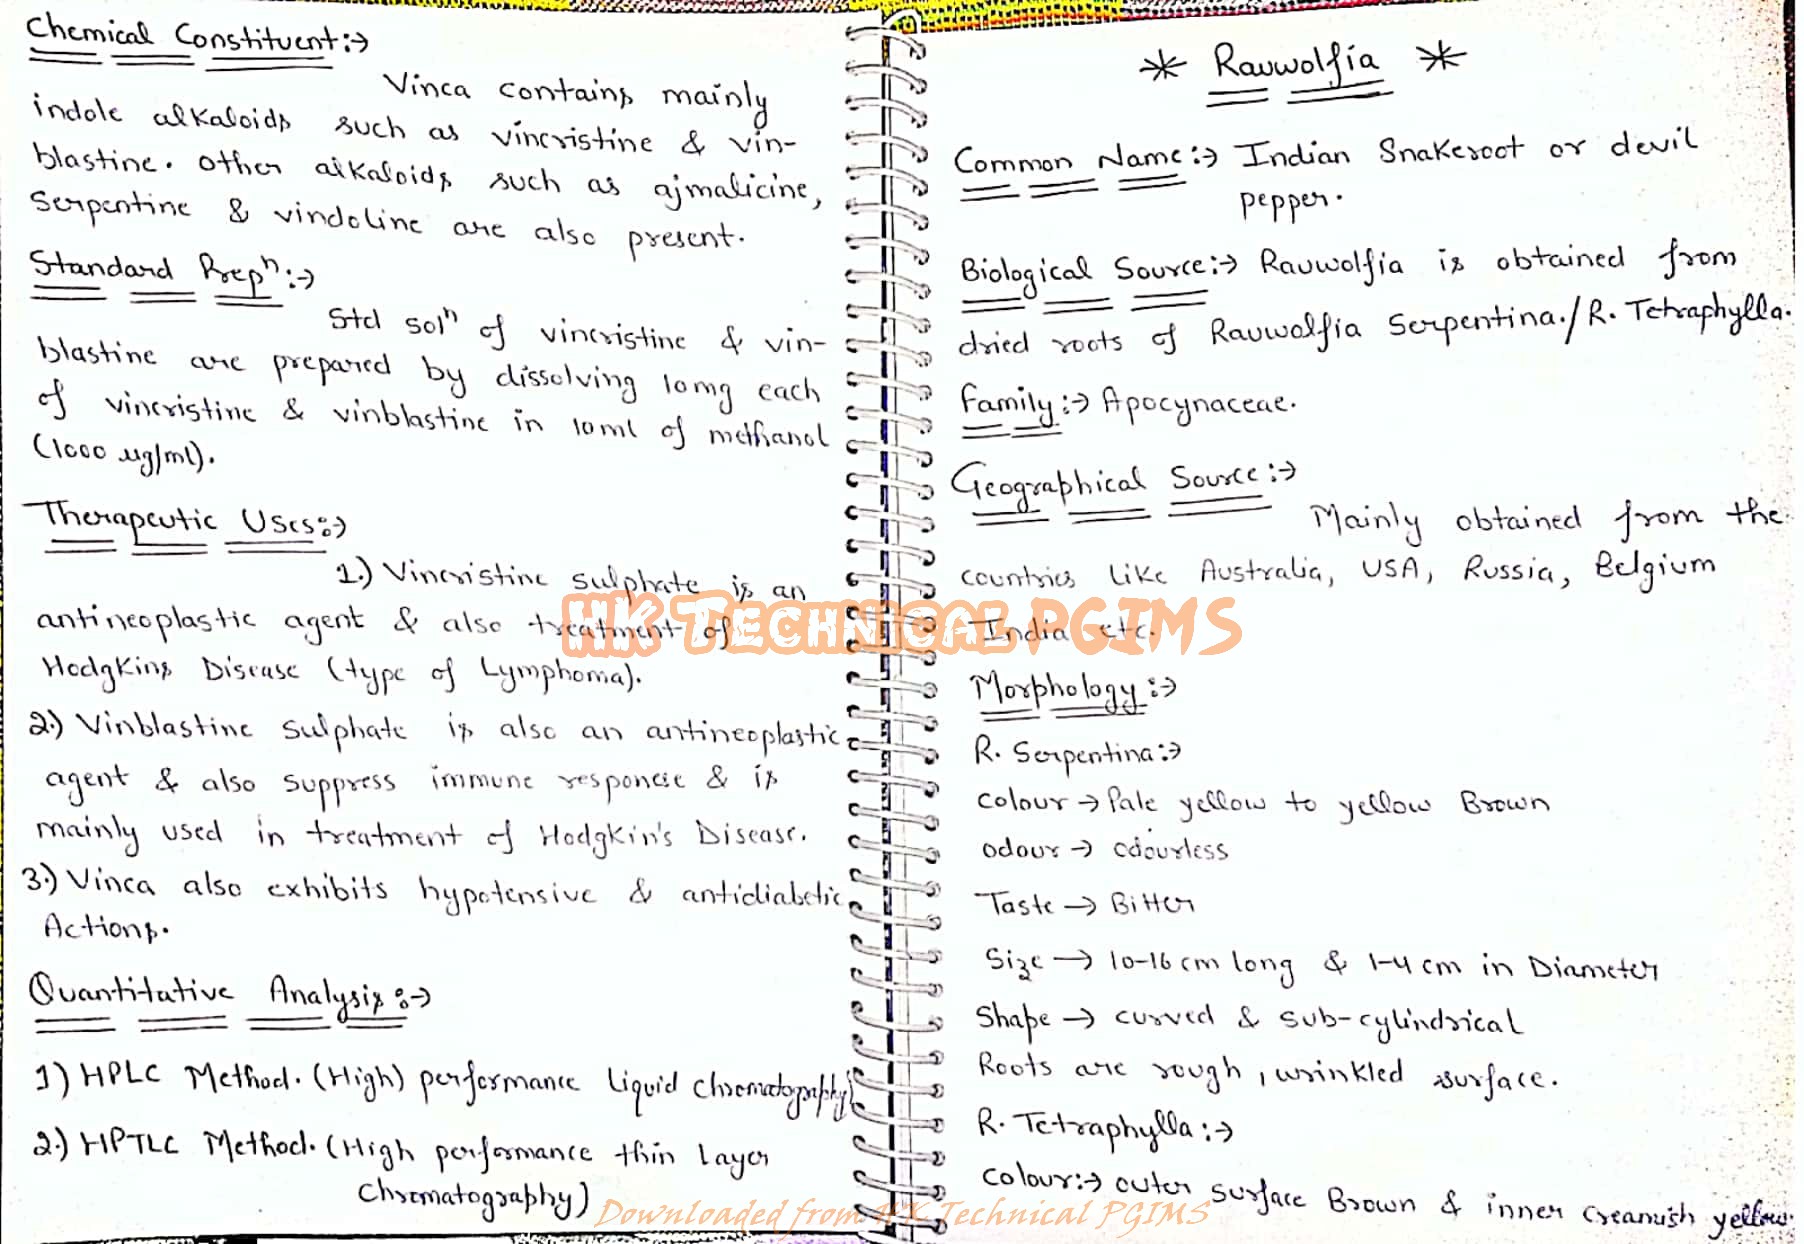 Chemical Constituent:→
Vinca contains mainly
indole alkaloids such as vincristine & vin-
blastine. Other alkaloids such as ajmalicine,
Serpentine & vindoline are also present.
Standard Prepⁿ:→
Std solⁿ of vincristine & vin-
blastine are prepared by dissolving 10mg each
of vincristine & vinblastine in 10ml of methanol
(1000 ug/ml).
Therapeutic Uses:→
1.) Vincristine sulphate is an
antineoplastic agent & also treatment of
Hodgkins Disease (type of Lymphoma).
2.) Vinblastine sulphate is also an antineoplastic
agent & also suppress immune response & is
mainly used in treatment of Hodgkin's Disease.
3.) Vinca also exhibits hypotensive & antidiabetic
Actions.
Quantitative Analysis:→
1) HPLC Method. (High) performance Liquid Chromatography)
2.) HPTLC Method. (High performance thin Layer
Chromatography)
* Rauwolfia *
Common Name:→ Indian Snakeroot or devil
pepper.
Biological Source:→ Rauwolfia is obtained from
dried roots of Rauwolfia Serpentina./R. Tetraphylla.
Family:→ Apocynaceae.
Geographical Source:→
Mainly obtained from the
countries like Australia, USA, Russia, Belgium
India etc.
Morphology:→
R. Serpentina:→
Colour → Pale yellow to yellow Brown
odour → odourless
Taste → Bitter
Size → 10-16 cm long & 1-4 cm in Diameter
Shape → curved & sub-cylindrical
Roots are rough, wrinkled surface.
R. Tetraphylla:→
Colour:→ outer surface Brown & inner creamish yellow.
HK Technical PGIMS
Downloaded from HK Technical PGIMS